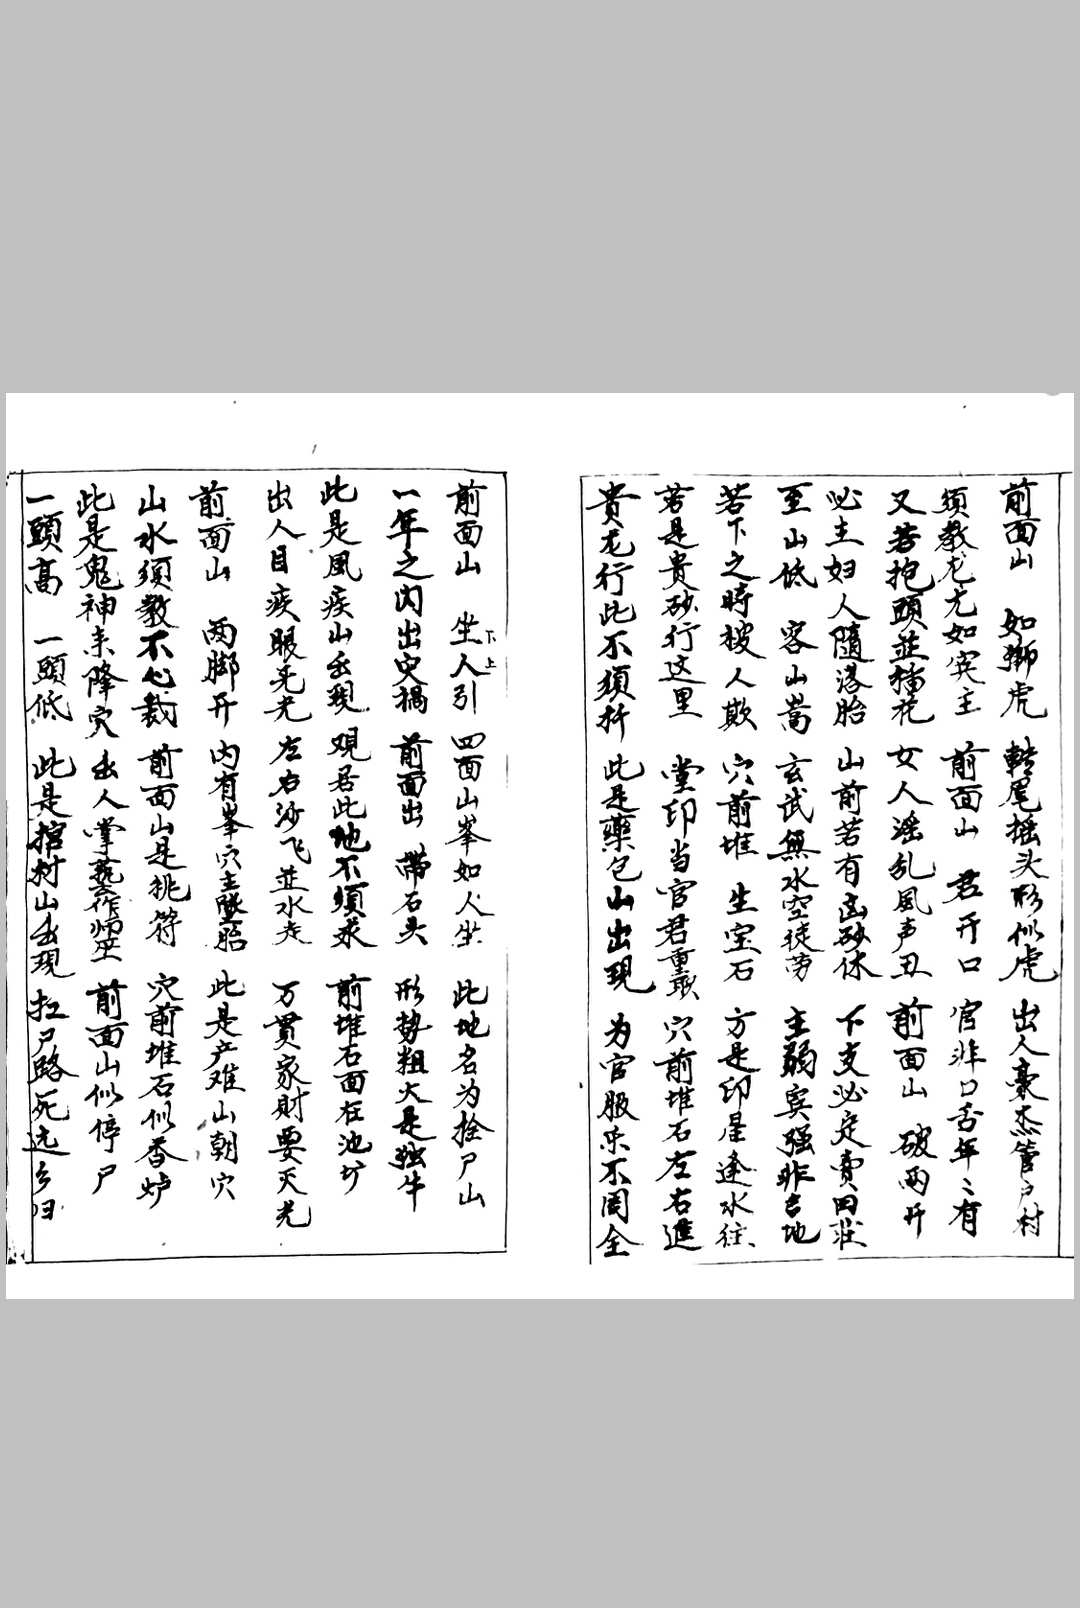 前面山 如狮虎 転尾摇头形似虎 出人豪杰管户村
须教龙尤如宾主 前面山 君开口 官非口舌年〻有
又若抱頭並插花 女人滛乱風声丑 前面山 破两开
必主妇人隨落胎 山前若有凶砂体 下支必定賣田莊
至山低 客山嵩 玄武無水空徒劳 主弱宾强非吉地
若下之時被人欺 穴前堆 生宝石 方是印星逢水往
若是贵砂行这里 堂印当官君重 穴前堆石左右進
贵龙行此不須折 此是藥包山出現 为官服禾不周全
前面山 坐人引 下 上 四面山峯如人坐 此地名为拴尸山
一年之内出灾禍 前面出 帶石头 形势粗大是独牛
此是風疾山出現 观君此地不须求 前堆石面在池圹
出人目疾眼无光 左右沙飞並水走 万贯家財要灭光
前面山 两脚开 内有峯穴主墜胎 此是产难山朝穴
山水须教不心裁 前面山是桃符 穴前堆石似香炉
此是鬼神来降穴 出人掌藝作师巫 前面山似停尸
一頭高 一頭低 此是棺材山出現 扛尸路死远乡归